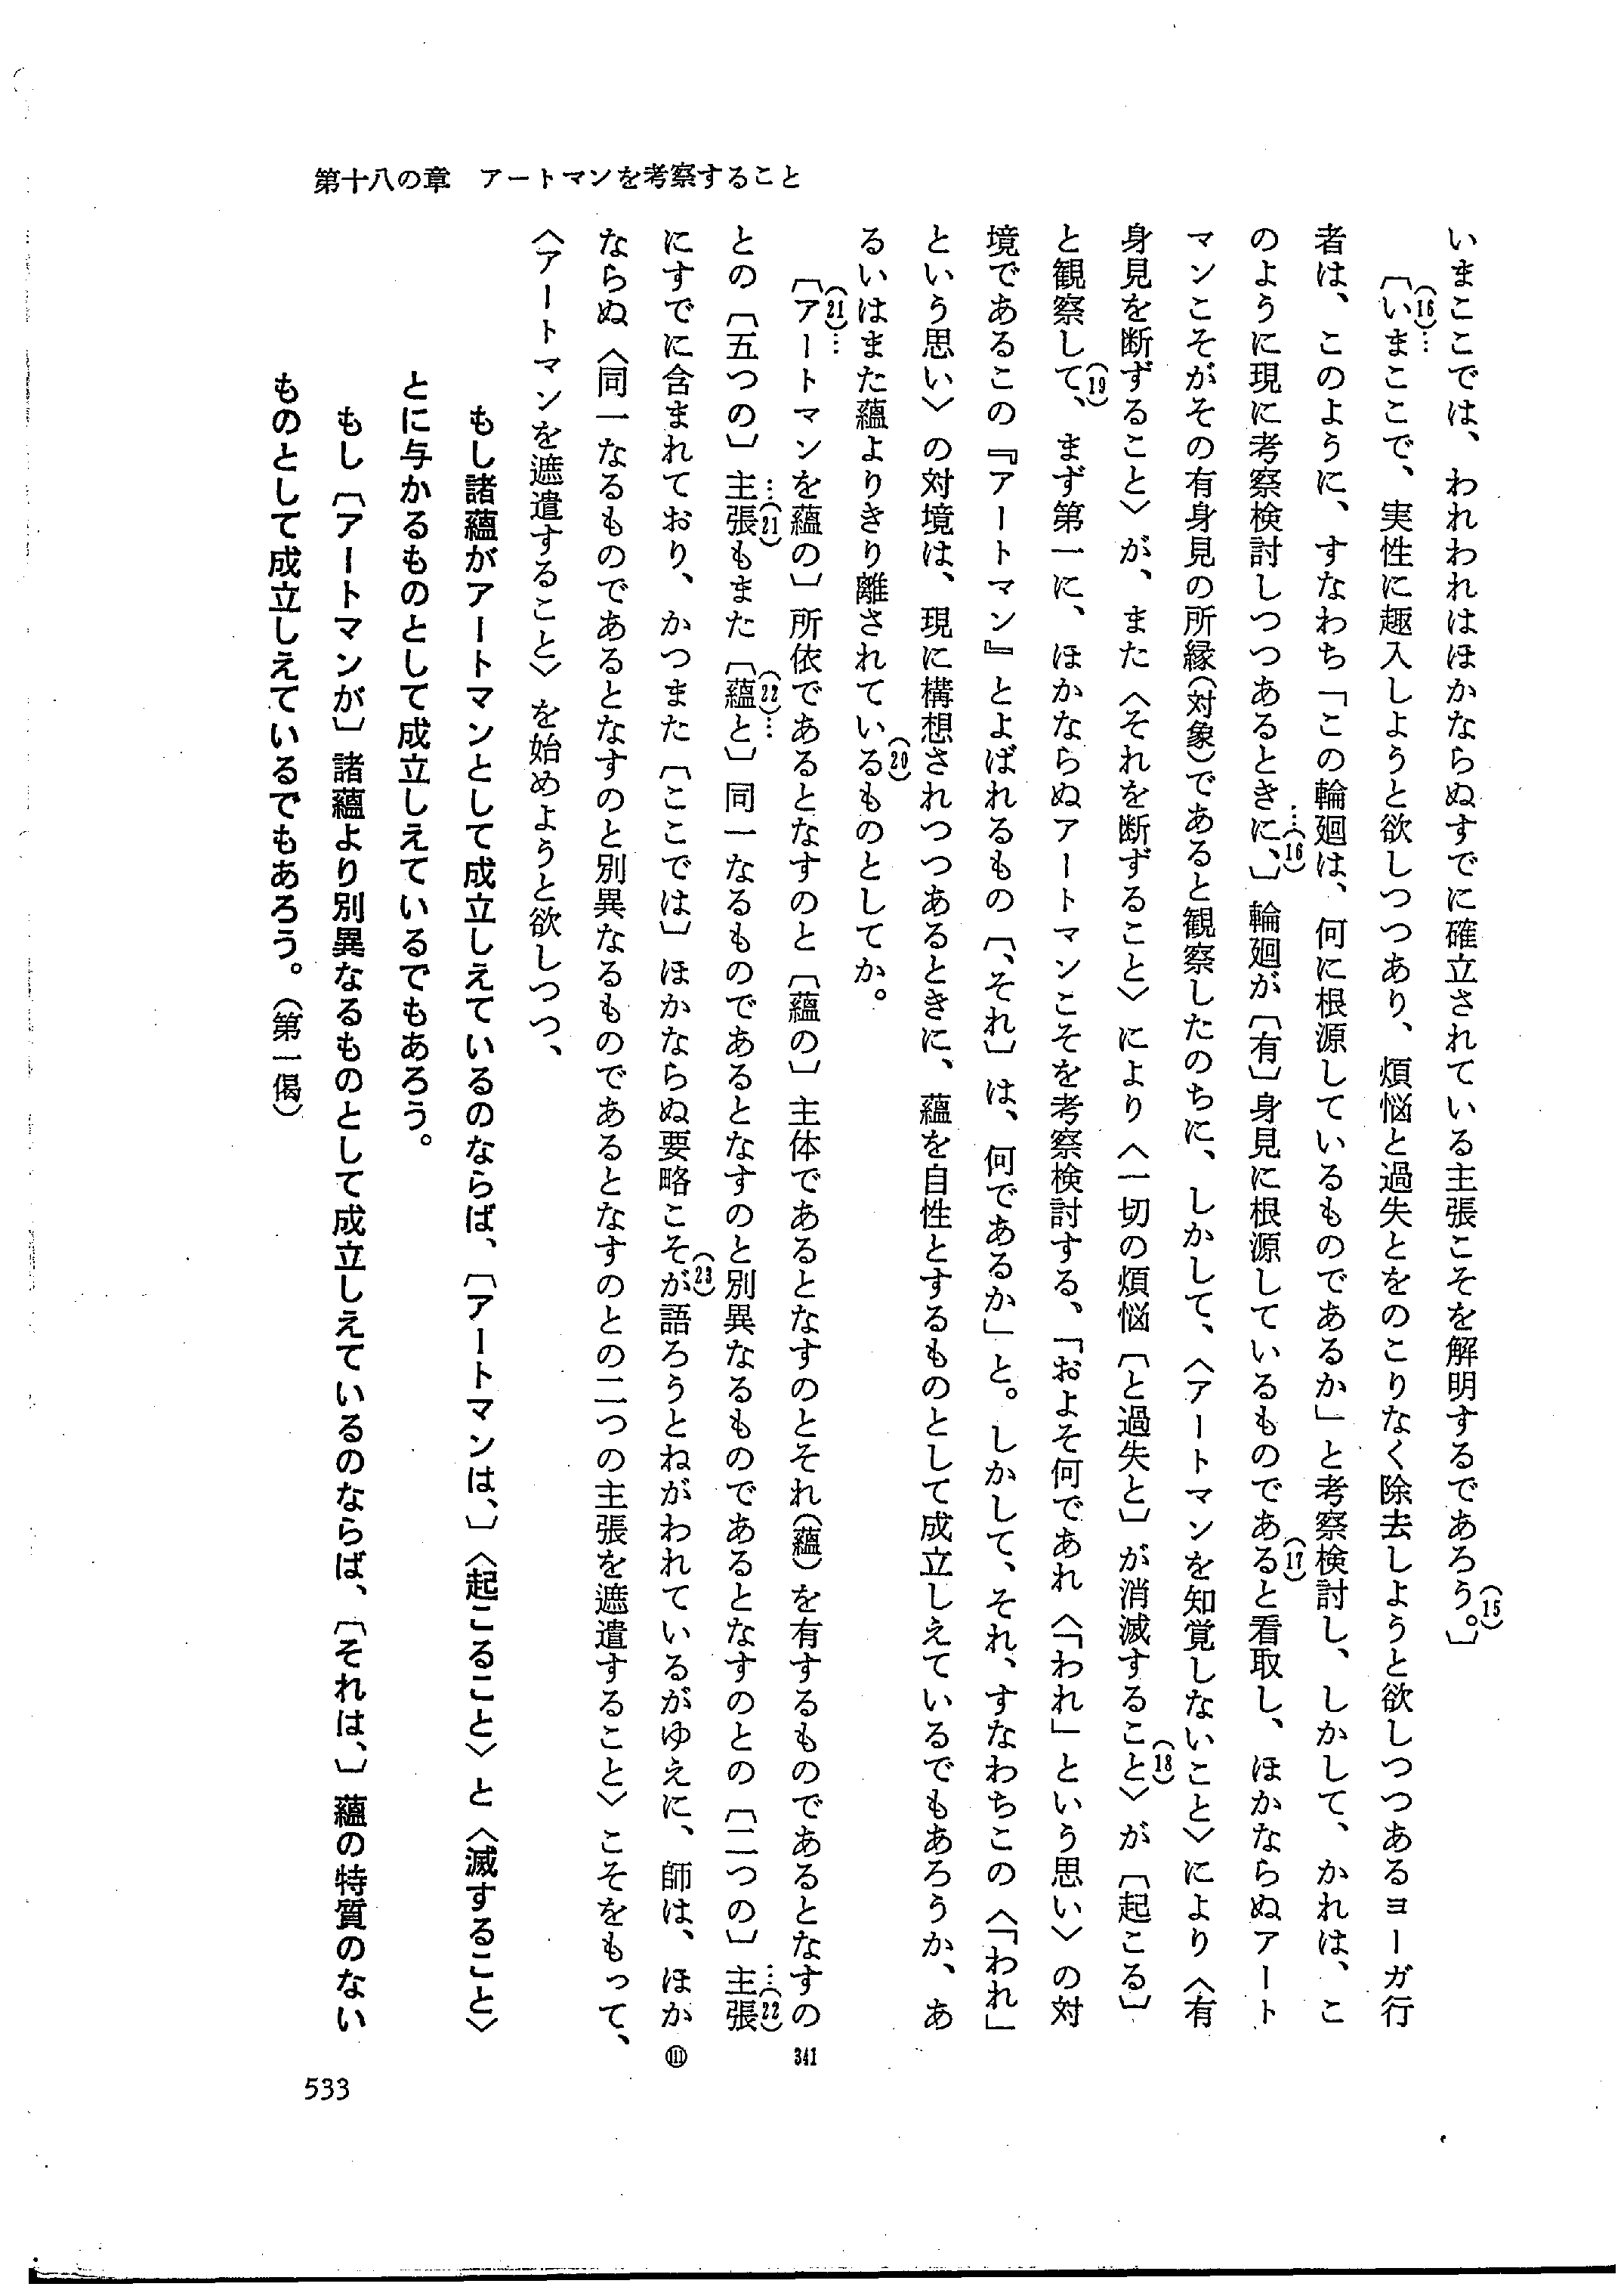 第十八の章　アートマンを考察すること
いまここでは、われわれはほかならぬすでに確立されている主張こそを解明するであろう。〕(15)
〔(16)…いまここで、実性に趣入しようと欲しつつあり、煩悩と過失とをのこりなく除去しようと欲しつつあるヨーガ行
者は、このように、すなわち「この輪廻は、何に根源しているものであるか」と考察検討し、しかして、かれは、こ
のように現に考察検討しつつあるときに、〕…(16)輪廻が〔有〕身見に根源しているものである(17)と看取し、ほかならぬアート
マンこそがその有身見の所縁(対象)であると観察したのちに、しかして、〈アートマンを知覚しないこと〉により〈有
身見を断ずること〉が、また〈それを断ずること〉により〈一切の煩悩〔と過失と〕が消滅すること(18)〉が〔起こる〕
と観察して、(19)まず第一に、ほかならぬアートマンこそを考察検討する、「およそ何であれ〈「われ」という思い〉の対
境であるこの『アートマン』とよばれるもの〔、それ〕は、何であるか」と。しかして、それ、すなわちこの〈「われ」
という思い〉の対境は、現に構想されつつあるときに、蘊を自性とするものとして成立しえているでもあろうか、あ
るいはまた蘊よりきり離されている(20)ものとしてか。
〔(21)…アートマンを蘊の〕所依であるとなすのと〔蘊の〕主体であるとなすのとそれ(蘊)を有するものであるとなすの
との〔五つの〕主張…(21)もまた〔(22)…蘊と〕同一なるものであるとなすのと別異なるものであるとなすのとの〔二つの〕主張…(22)
にすでに含まれており、かつまた〔ここでは〕ほかならぬ要略こそが(23)語ろうとねがわれているがゆえに、師は、ほか
ならぬ〈同一なるものであるとなすのと別異なるものであるとなすのとの二つの主張を遮遣すること〉こそをもって、
〈アートマンを遮遣すること〉を始めようと欲しつつ、
もし諸蘊がアートマンとして成立しえているのならば、〔アートマンは、〕〈起こること〉と〈滅すること〉
とに与かるものとして成立しえているでもあろう。
もし〔アートマンが〕諸蘊より別異なるものとして成立しえているのならば、〔それは、〕蘊の特質のない
ものとして成立しえているでもあろう。(第一偈)
341
Ⅲ
533